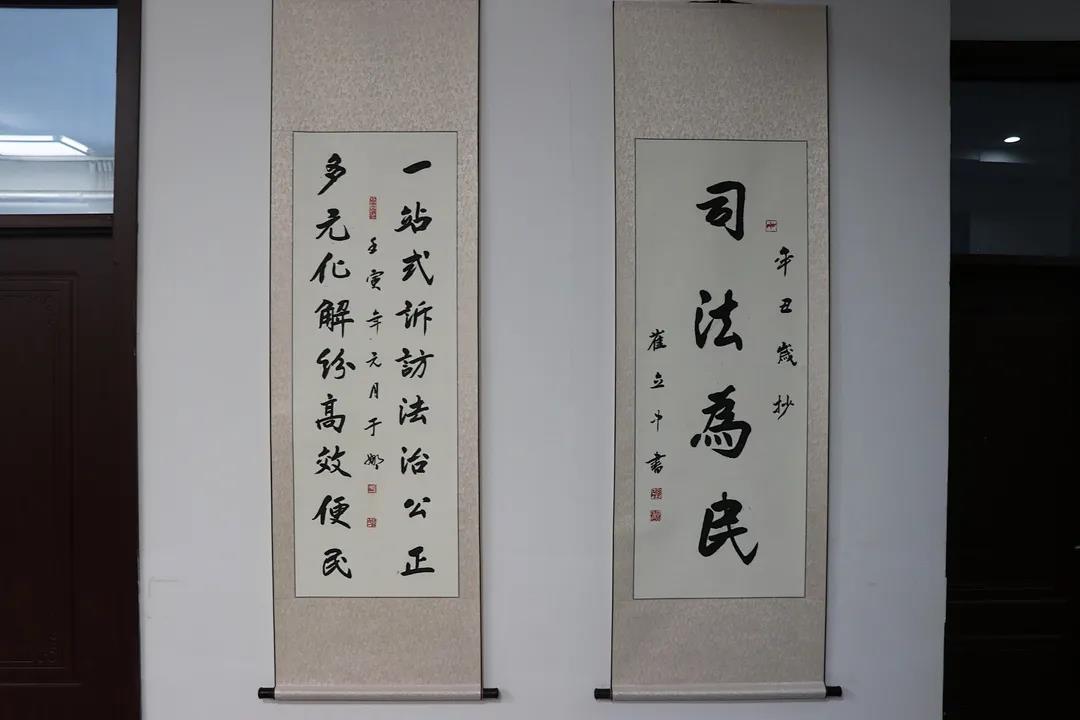 辛丑歲抄
司法為民
崔立斗書
一站式訴訪法治公正
壬寅年元月于娜
多元化解纷高效便民